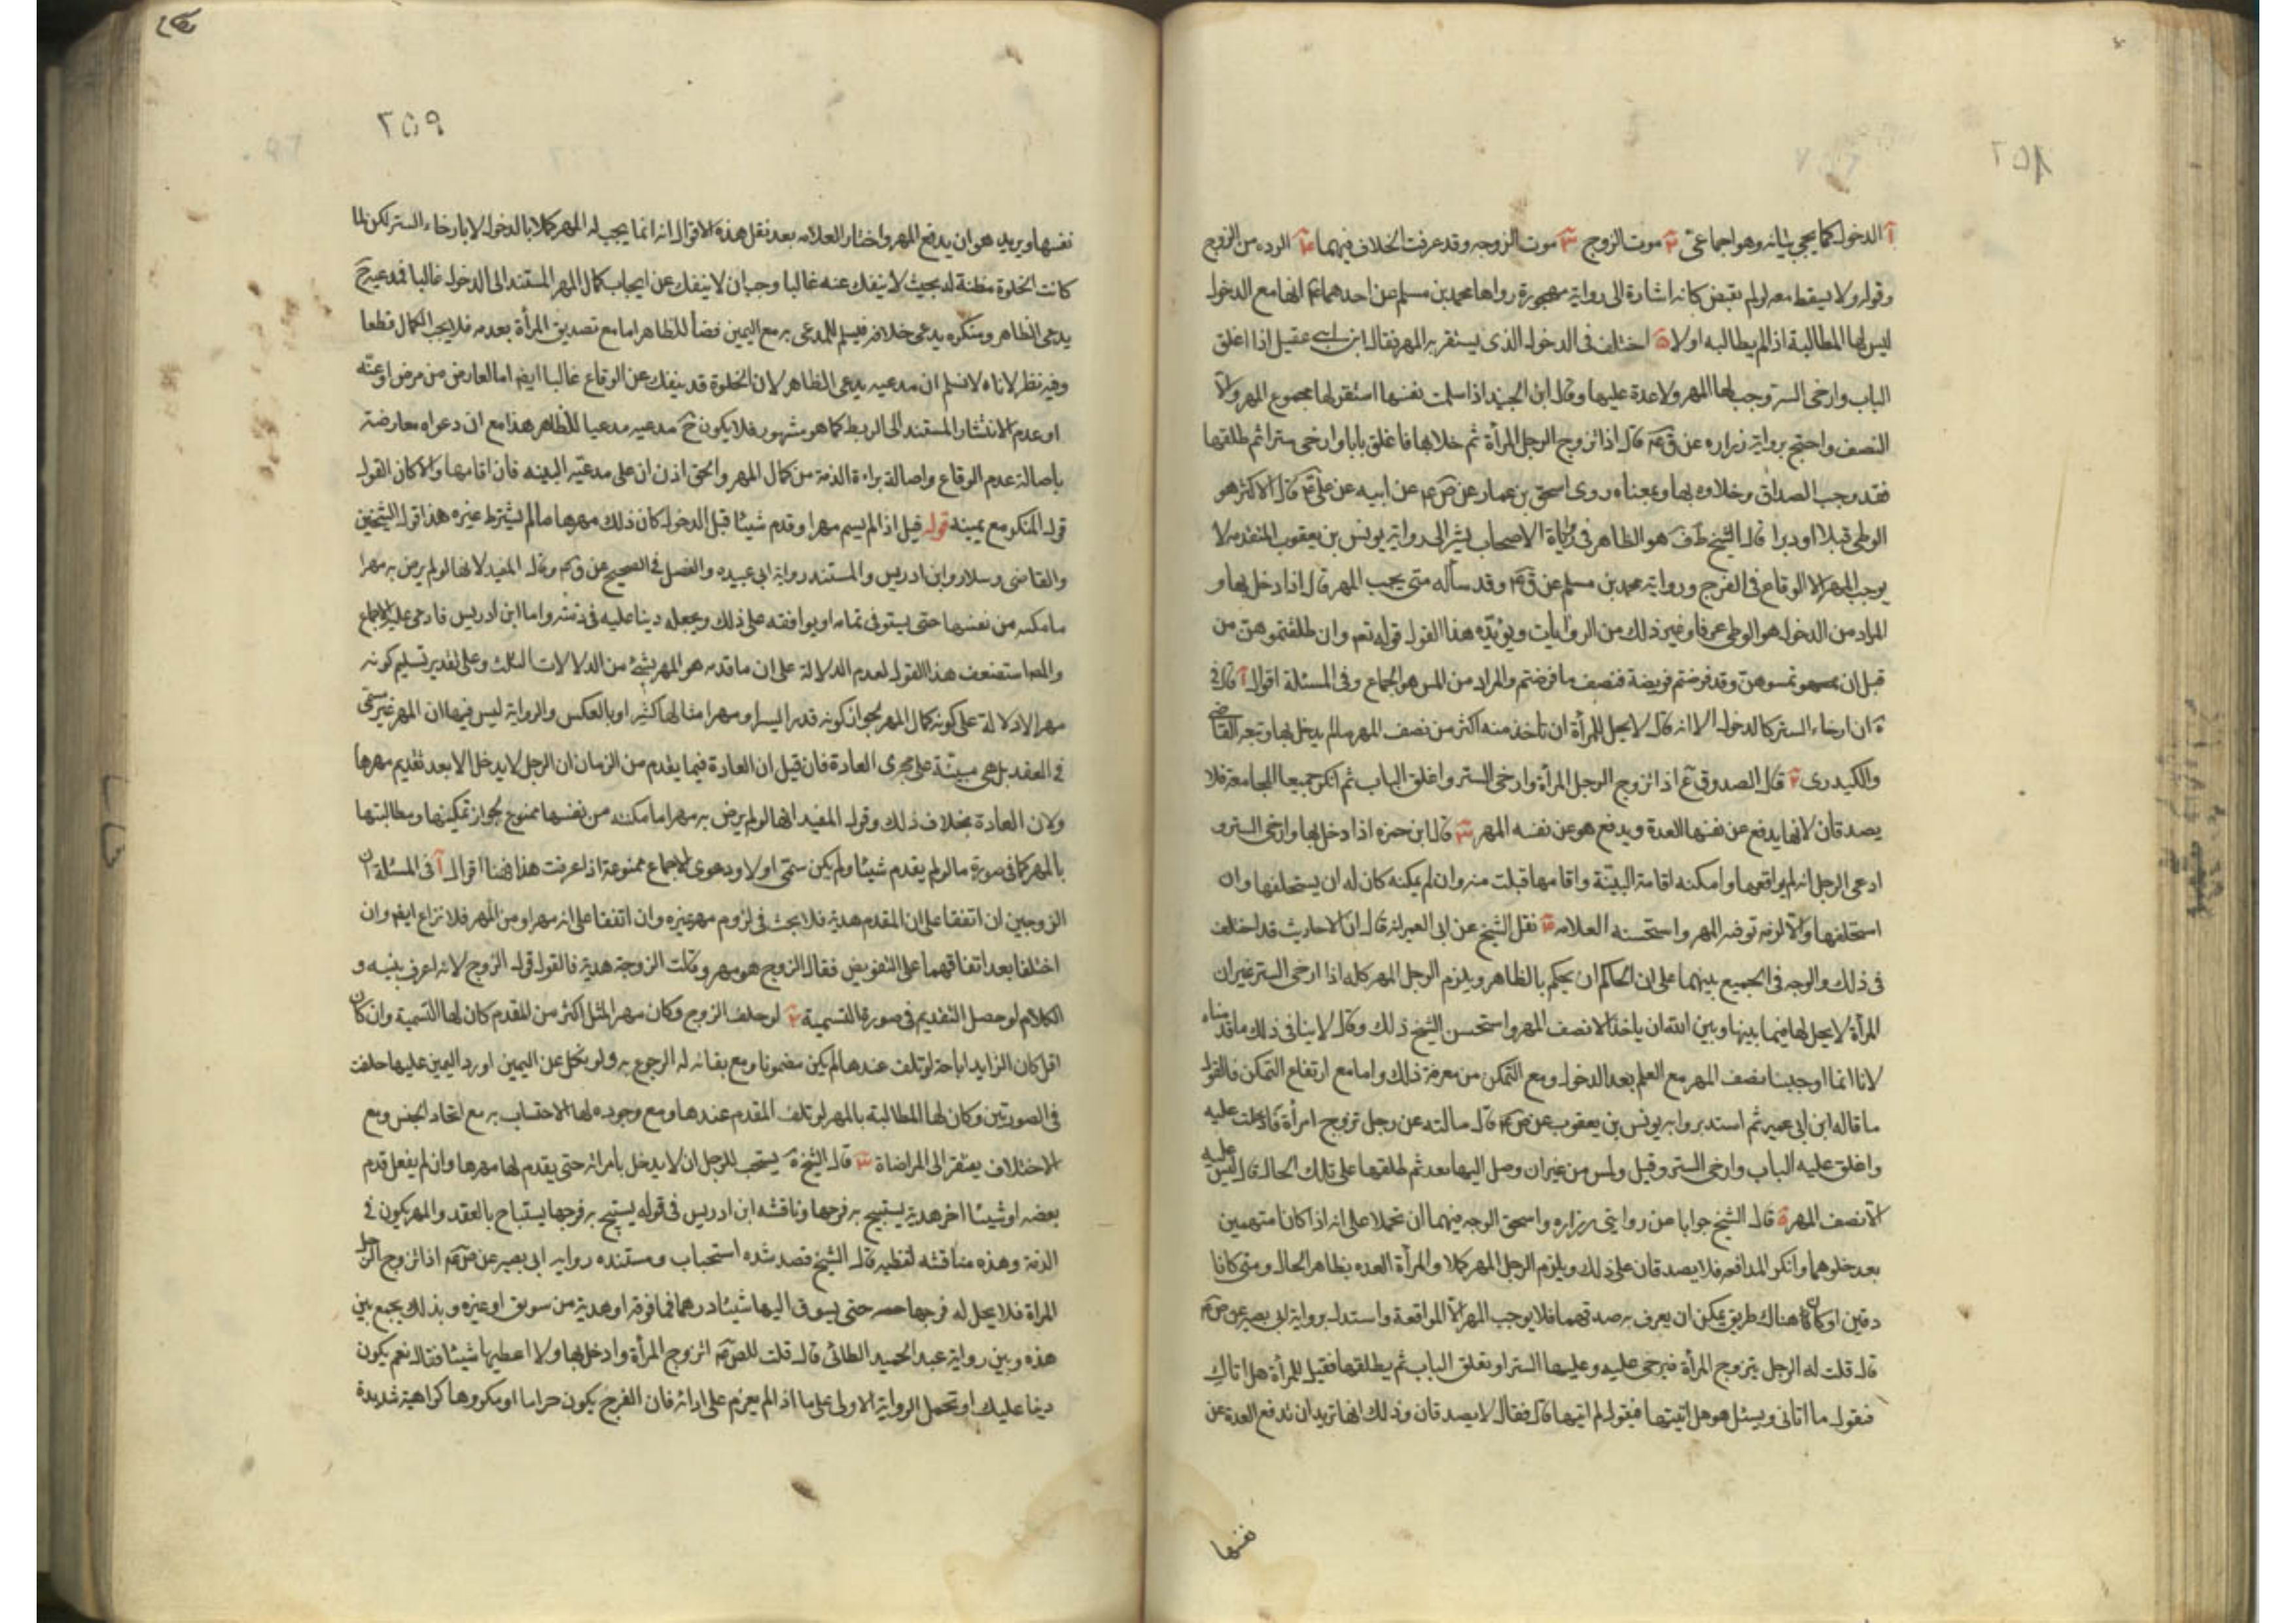 آ الدخول كما يجي بيانه وهو اجماعيّ ٢ موت الزوج ٣ موت الزوجه وقد عرفت الخلاف فيهما ٤ الرده من الزوج
وقوله ولا يسقط معه لو لم يقبض كانه اشارة الى رواية مهجورة رواها محمد بن مسلم عن احدهما انها مع الدخول
ليس لها المطالبة اذا لم يطالبه اولا ة اختلف في الدخول الذى يستقر به المهر فقال ابن ابى عقيل اذا اغلق
الباب وارخى الستر وجب لها المهر ولا عدة عليها وقال ابن الجنيد اذا سلمت نفسها استقر لها مجموع المهر والّا
النصف واحتج برواية زراره عن ق ع قال اذا تزوج الرجل المرأة ثم خلا بها فاغلق بابا وارخى سترا ثم طلقها
فقد وجب الصداق وخلاوه بها وبمعناه روى اسحق بن عمار عن ص ع عن ابيه عن على ع قال الاكثر هو
الوطى قبلا او دبرا قال الشيخ ط ف هو الظاهر في روايات الاصحاب يشير الى رواية يونس بن يعقوب المتقدمه لا
يوجب المهر الا الوقاع في الفرج ورواية محمد بن مسلم عن ق ع وقد سأله متى يجب المهر قال اذا دخل بها و
المراد من الدخول هو الوطى عرفا وغير ذلك من الروايات ويؤيّده هذا القول قوله تعم وان طلقتموهن من
قبل ان تمسوهن وقد فرضتم فريضة فنصف ما فرضتم والمراد من المس هو الجماع وفى المسئلة اقوال آ قال في
ة ان ارخاء الستر كالدخول الا انه قال لا يحل للمرأة ان تأخذ منه اكثر من نصف المهر ما لم يدخل بها وتبعه القاضى
والكيدرى ٢ قال الصدوق ع اذا تزوج الرجل المرأة وارخى الستر واغلق الباب ثم انكرا جميعا المجامعة فلا
يصدقان لانها يدفع عن نفسها العدة ويدفع هو عن نفسه المهر ٣ قال ابن حمزه اذا دخل بها وارخى الستر و
ادعى الرجل انه لم يواقعها وامكنه اقامة البيّنة واقامها قبلت منه وان لم يمكنه كان له ان يستحلفها وان
استحلفها والّا لزمه توفيه المهر واستحسنه العلامه ٤ نقل الشيخ عن ابى العمير انه قال ان الاحاديث قد اختلف
فى ذلك والوجه فى الجميع بينهما على ان الحاكم ان يحكم بالظاهر ويلزم الرجل المهر كله اذا ارخى الستر غير ان
المرأة لا يحل لها فيما بينها وبين الله ان ياخذ الا نصف المهر واستحسن الشيخ ذلك وقال لا ينافى ذلك ما قدمناه
لانا انما اوجبنا نصف المهر مع العلم بعد الدخول ومع التمكن من معرفة ذلك واما مع ارتفاع التمكن فالقول
ما قاله ابن ابى عمير ثم استد بروايه يونس بن يعقوب عن ص ع قال سالته عن رجل تزوج امرأة فادخلت عليه
واغلق عليه الباب وارخى الستر وقبل ولمس من غير ان وصل اليها بعد ثم طلقها على تلك الحال قال ليس عليه
الا نصف المهر ة قال الشيخ جوابا عن روايتى زراره واسحق الوجه فيهما ان تحملا على انه اذا كانا متهمين
بعد خلوهما وانكر المدافعه فلا يصدقان على ذلك ويلزم الرجل المهر كملا والمرأة العده بظاهر الحال ومتى كانا صا
دقين او كان هناك طريق يمكن ان يعرف به صدقهما فلا يوجب المهر الّا المواقعة واستدل برواية ابى بصير عن ص ع
قال قلت له الرجل يتزوج المرأة فيرخى عليه وعليها الستر او يغلق الباب ثم يطلقها فقيل للمرأة هل اتاك
فتقول ما اتانى ويسئل هو هل اتيتها فيقول لم اتيها قال فقال لا يصدقان وذلك انها تريد ان تدفع العدة عن
نفسها
٢٥٩
نفسها ويريد هو ان يدفع المهر واختار العلامه بعد نقل هذه الاقوال انه انما يجب له المهر كملا بالدخول لا بارخاء الستر لكن لما
كانت الخلوة مظنة له بحيث لا ينفك عنه غالبا وجب ان لا ينفك عن ايجاب كمال المهر المستند الى الدخول غالبا فمدعيه ح
يدعى الظاهر ومنكره يدعى خلافه فيسلم للمدعى به مع اليمين قضأ للظاهر اما مع تصديق المرأة بعدمه فلا يجب الكمال قطعا
وفيه نظر لاناه لا نسلم ان مدعيه يدعى الظاهر لان الخلوة قد ينفك عن الوقاع غالبا ايضا اما لعارض من مرض او عنّه
او عدم الانتشار المستند الى الربط كما هو مشهور فلا يكون ح مدعيه مدعيا للظاهر هذا مع ان دعواه معارضته
باصالة عدم الوقاع واصالة براءة الذمة من كمال المهر والحق اذن ان على مدعيّه البينه فان اقامها والا كان القول
قول المنكر مع يمينه قوله قيل اذا لم يسم مهرا وقدم شيئا قبل الدخول كان ذلك مهرها ما لم يشترط غيره هذا قول الشيخين
والقاضى وسلار وابن ادريس والمستند رواية ابى عبيده والفضل في الصحيح عن ق ع وقال المفيد لانها لو لم يرض به مهرا
ما مكنه من نفسها حتى يستوفى تمامه او يوافقه على ذلك ويجعله دينا عليه فى ذمته واما ابن ادريس فادعى عليه الاجماع
والمصا ستضعف هذا القول لعدم الدلالة على ان ما قدمه هو المهر بشئ من الدلالات الثلث وعلى تقدير تسليم كونه
مهرا لا دلالة على كونه كمال المهر لجواز كونه قدرا يسيرا ومهر امثالها كثيرا او بالعكس والرواية ليس فيها ان المهر غير مسمّى
في العقد بل هي مبنيّة على مجرى العادة فان قيل ان العادة فيما يقدم من الزمان ان الرجل لا يدخل الا بعد تقديم مهرها
ولان العادة بخلاف ذلك وقول المفيد انها لو لم يرض به مهرا ما مكنته من نفسها ممنوع لجواز تمكينها ومطالبتها
بالمهر كما فى صورة ما لو لم يقدم شيئا ولم يكن سمّى اولا ودعوى الاجماع ممنوعة اذا عرفت هذا فهنا اقوال آ فى المسئلة ان
الزوجين ان اتفقا على ان المقدم هدية فلا بحث في لزوم مهر غيره وان اتفقا على انه مهر او من المهر فلا نزاع ايضا وان
اختلفا بعد اتفاقهما على التفويض فقال الزوج هو مهر وقالت الزوجة هدية فالقول قول الزوج لانه اعرف بنيته و
الكلام لو حصل التقديم في صورة التسمية ٢ لو حلف الزوج وكان مهر المثل اكثر من المقدم كان لها التسمية وان كان
اقل كان الزايد اباحة لو تلف عندها لم يكن مضمونا ومع بقائه له الرجوع به ولو نكل عن اليمين او رد اليمين عليها حلفت
فى الصورتين وكان لها المطالبة بالمهر لو تلف المقدم عندها ومع وجوده لها الاحتساب به مع اتحاد الجنس ومع
الاختلاف يفتقر الى المراضاة ٣ قال الشيخ ة يستحب للرجل ان لا يدخل بامرأته حتى يقدم لها مهرها وان لم يفعل قدم
بعضه او شيئا اخر هدية يستبيح به فرجها وناقشه ابن ادريس فى قوله يستبيح به فرجها يستباح بالعقد والمهر يكون في
الذمة وهذه مناقشه لفظيه قال الشيخ قصد شده استحباب ومستنده روايه ابى بصير عن ص ع اذا تزوج الرجل
المراة فلا يحل له فرجها حتى يسوق اليها شيئا درهما فما فوقه او هدية من سويق او غيره وبذلك يجمع بين
هذه وبين رواية عبد الحميد الطائى قال قلت للص ع اتزوج المرأة وادخل بها ولا اعطيها شيئا فقال نعم يكون
دينا عليك او تحمل الرواية الاولى على ما اذا لم يعزم على ادائه فان الفرج يكون حراما او مكروها كراهية شديدة